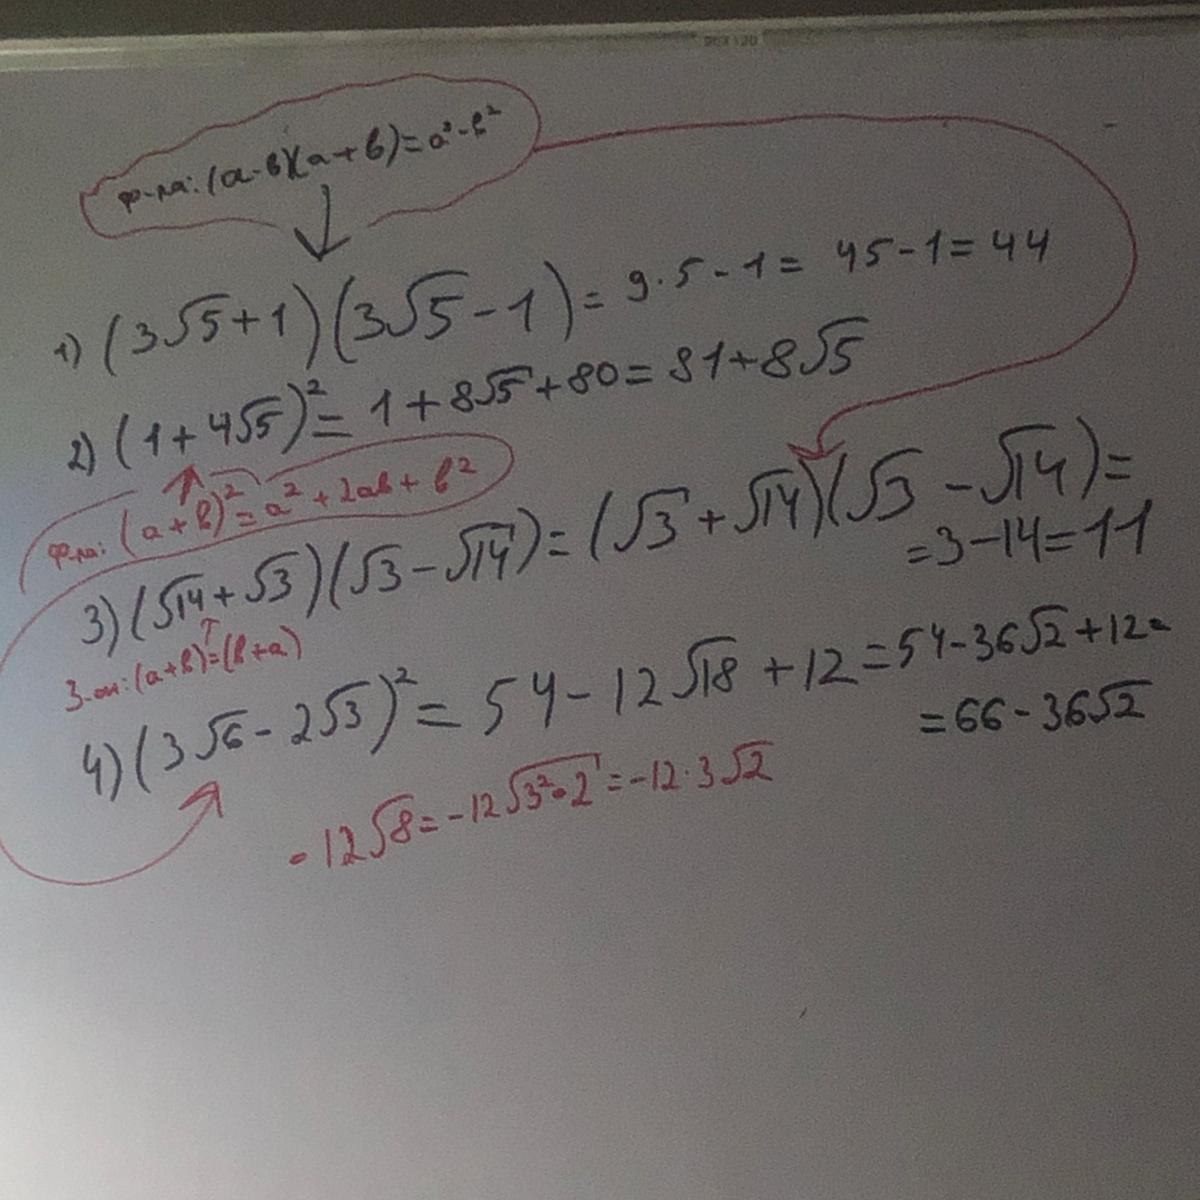 ф-ла: (a-b)(a+b)=a²-b²
1) (3√5+1)(3√5-1)=9·5-1=45-1=44
2) (1+4√5)²=1+8√5+80=81+8√5
ф-ла: (a+b)²=a²+2ab+b²
3) (√14+√3)(√3-√14)=(√3+√14)(√3-√14)=
=3-14=11
З-он: (a+b)=(b+a)
4) (3√6-2√3)²=54-12√18+12=54-36√2+12=
=66-36√2
-12√8=-12√3²·2=-12·3√2